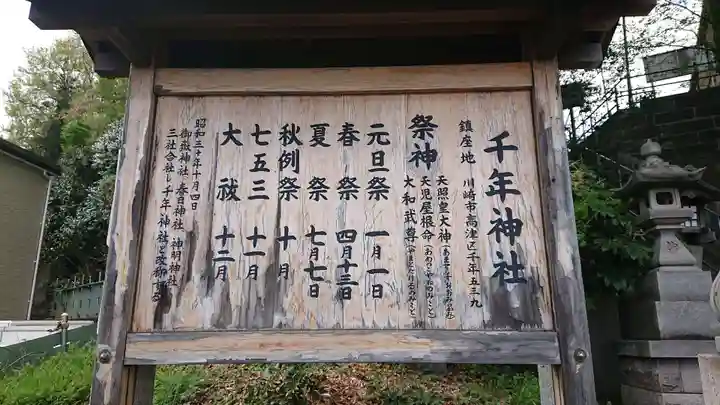 千年神社
鎮座地　川崎市高津区千年五三九
祭神　天照皇大神（あまてらすおおみかみ）
天児屋根命（あめのこやねのみこと）
大和武尊（やまとたけるのみこと）
元旦祭　一月一日
春祭　四月十三日
夏祭　七月七日
秋例祭　十月
七五三　十一月
大祓　十二月
昭和三十年十月四日
御嶽神社、春日神社、神明神社
三社合社し千年神社と改称する